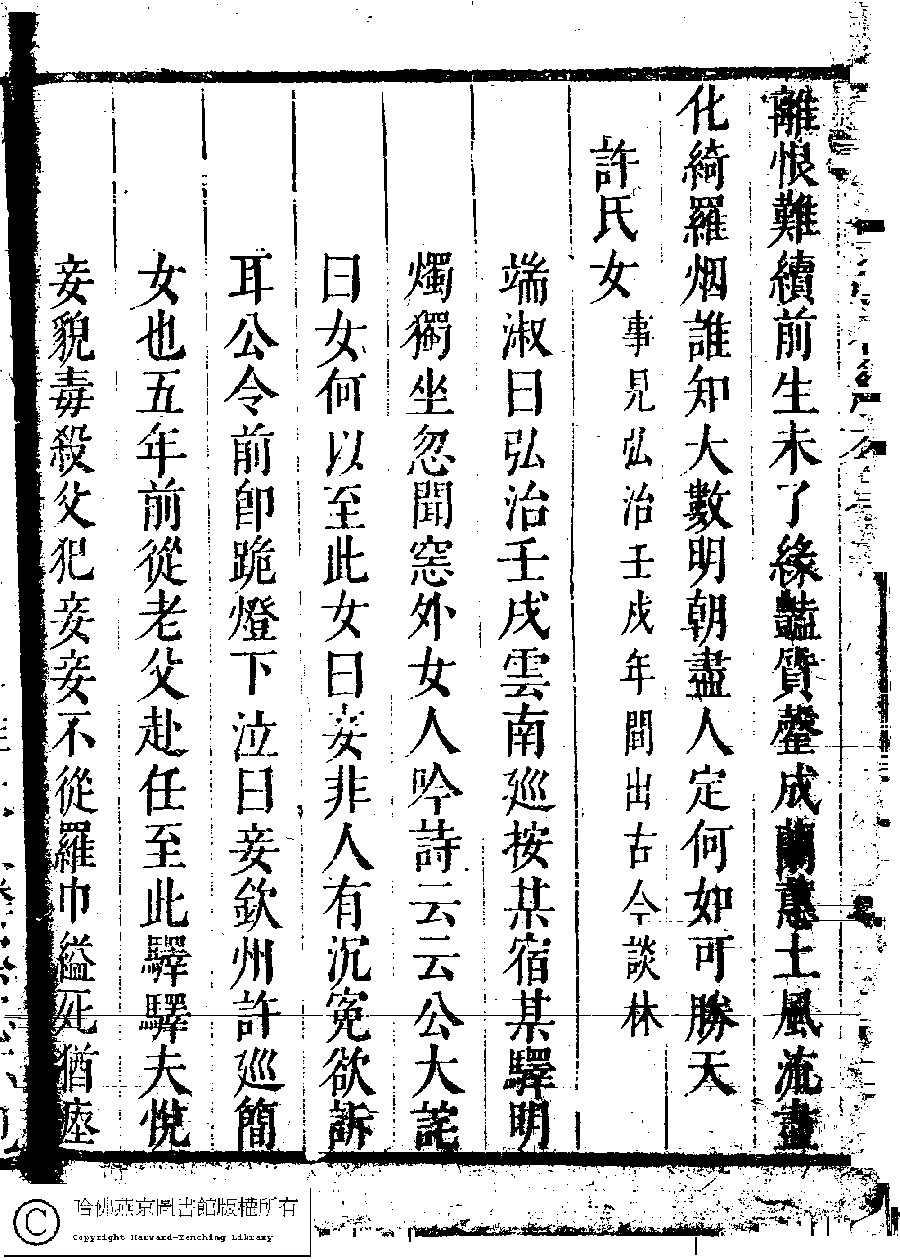 離恨難續前生未了緣豔質罄成蘭蕙土風流盡
化綺羅烟誰知大數明朝盡人定何如可勝天
許氏女 事見弘治壬戌年間出古今談林
端淑曰弘治壬戌雲南巡按某宿某驛明
燭獨坐忽聞窓外女人吟詩云云公大詫
曰女何以至此女曰妾非人有沉寃欲訴
耳公令前卽跪燈下泣曰妾欽州許巡簡
女也五年前從老父赴任至此驛驛夫悅
妾貌毒殺父犯妾妾不從羅巾縊死猶瘞
哈佛燕京圖書館版權所有
Copyright Harvard-Yenching Library